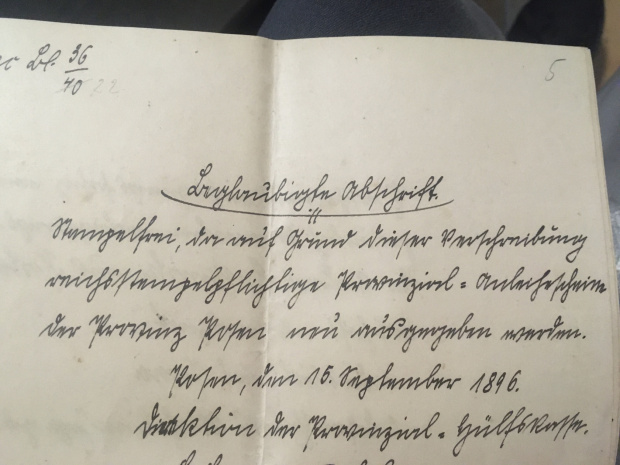 Bl. 36
40 22
5
Beglaubigte Abschrift.
Stempelfrei, da auf Grund dieser Verschreibung
reichsstempelpflichtige Provinzial-Anleihescheine
der Provinz Posen neu ausgegeben werden.
Posen, den 15. September 1896.
Direktion der Provinzial-Hülfskasse.